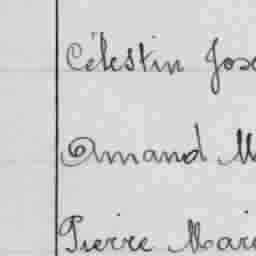 Célestin Jose
Amand M
Pierre Mari